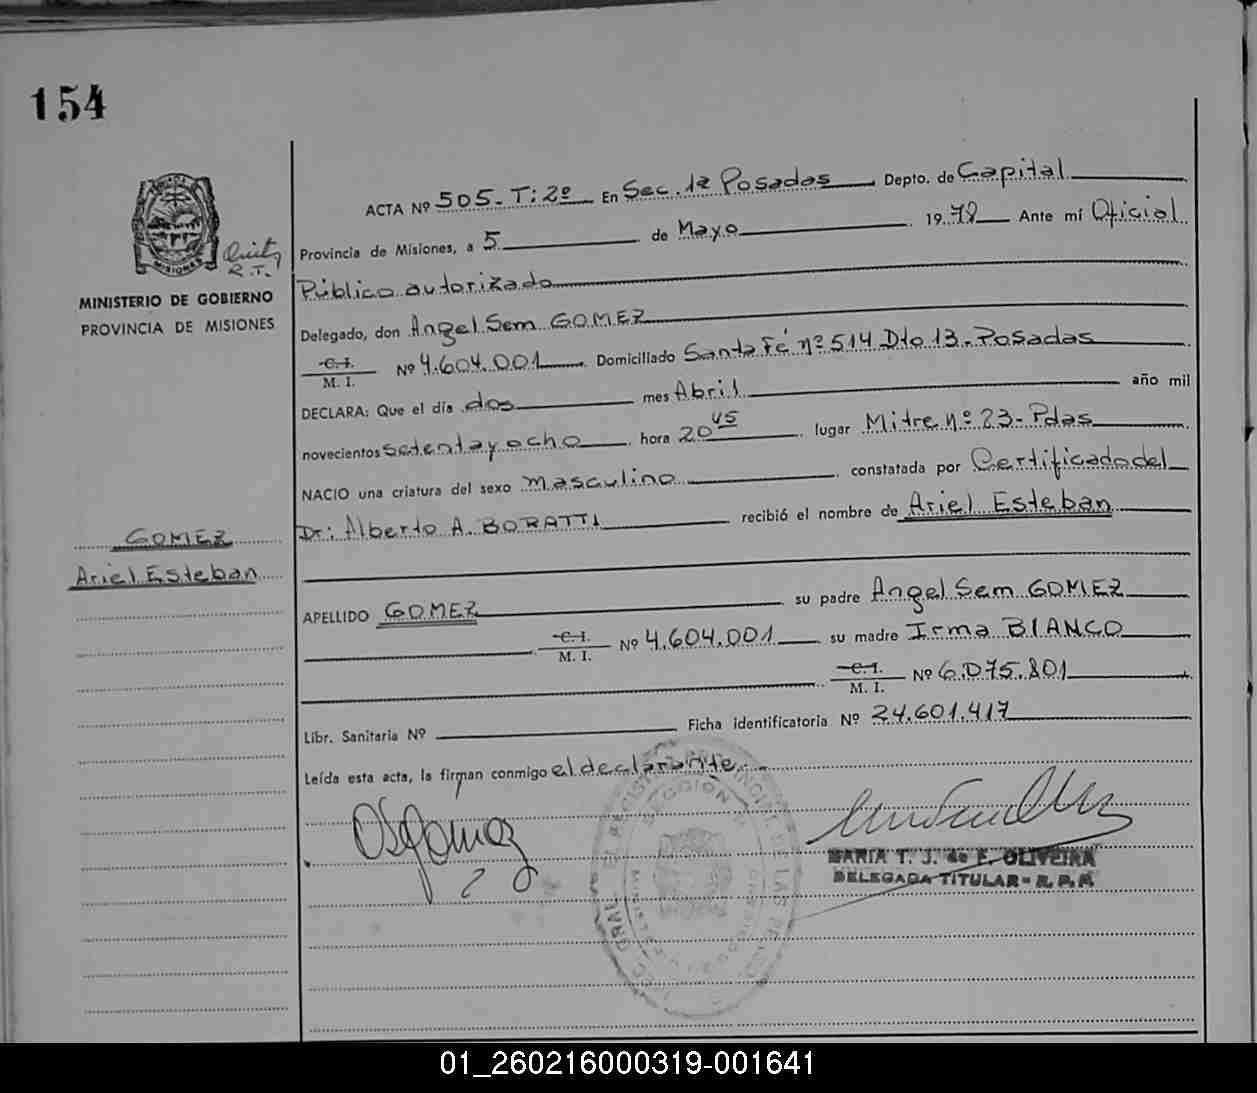 154
ACTA Nº 505-T:2º En Sec. 1ª Posadas Depto. de Capital
Provincia de Misiones, a 5 de Mayo 1978 Ante mí Oficial
Público autorizado
R.T.
MISIONES
MINISTERIO DE GOBIERNO
PROVINCIA DE MISIONES
Delegado, don Angel Sem GOMEZ
C. I.
M. I. Nº 4.604.001 Domiciliado Santa Fé nº 514 Dto 13-Posadas
DECLARA: Que el día dos mes Abril año mil
novecientos setenta y ocho hora 20 45 lugar Mitre nº 23-Pdas
NACIO una criatura del sexo masculino constatada por Certificado del
Dr: Alberto A. BORATTI recibió el nombre de Ariel Esteban
GOMEZ
Ariel Esteban
APELLIDO GOMEZ su padre Angel Sem GOMEZ
C. I.
M. I. Nº 4.604.001 su madre Irma BIANCO
C. I.
M. I. Nº 6.075.801
Libr. Sanitaria Nº Ficha identificatoria Nº 24.601.417
Leída esta acta, la firman conmigo el declarante.
MARIA T. J. de F. OLIVEIRA
DELEGADA TITULAR - R. P. P.
01_260216000319-001641